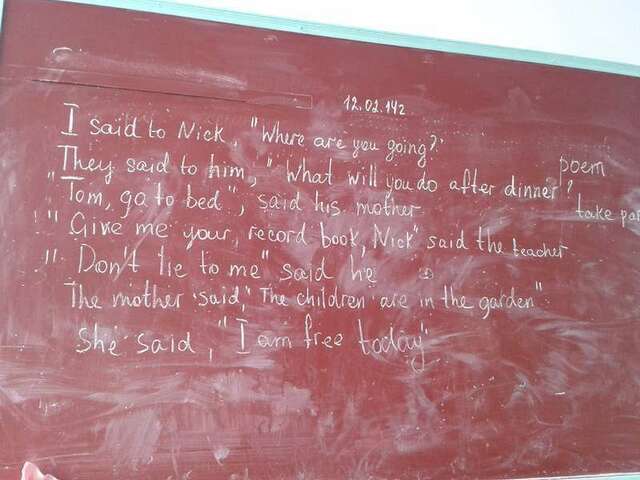 12.02.142
I said to Nick, "Where are you going?"
They said to him, "What will you do after dinner"?
poem
"Tom, go to bed", said his mother
take par
"Give me your, record book, Nick" said the teacher
"Don't lie to me" said he
The mother said, "The children are in the garden"
She said, "I am free today"